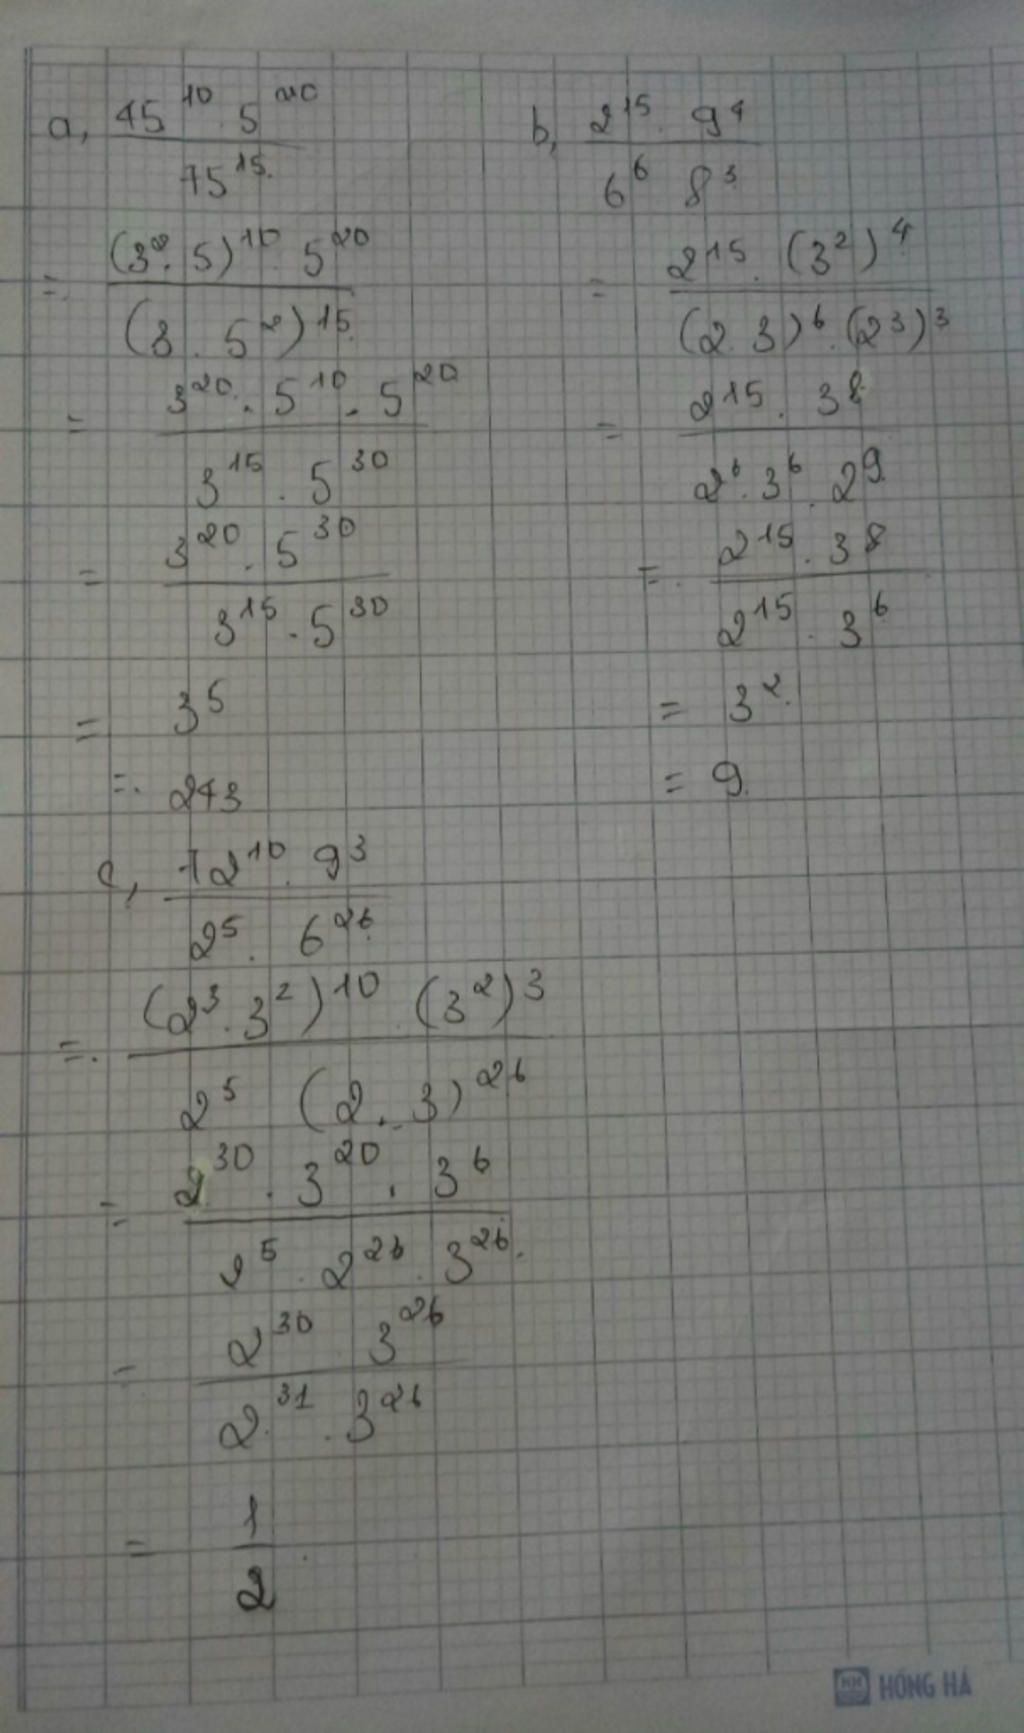 a, \frac{45^{10} . 5^{20}}{75^{15}}
= \frac{(3^2 . 5)^{10} . 5^{20}}{(3 . 5^2)^{15}}
= \frac{3^{20} . 5^{10} . 5^{20}}{3^{15} . 5^{30}}
= \frac{3^{20} . 5^{30}}{3^{15} . 5^{30}}
= 3^5
= 243
b, \frac{2^{15} . 9^4}{6^6 . 8^3}
= \frac{2^{15} . (3^2)^4}{(2 . 3)^6 . (2^3)^3}
= \frac{2^{15} . 3^8}{2^6 . 3^6 . 2^9}
= \frac{2^{15} . 3^8}{2^{15} . 3^6}
= 3^2
= 9
c, \frac{72^{10} . 9^3}{2^5 . 6^{26}}
= \frac{(2^3 . 3^2)^{10} . (3^2)^3}{2^5 (2 . 3)^{26}}
= \frac{2^{30} . 3^{20} . 3^6}{2^5 . 2^{26} . 3^{26}}
= \frac{2^{30} 3^{26}}{2^{31} . 3^{26}}
= \frac{1}{2}
HỒNG HÀ